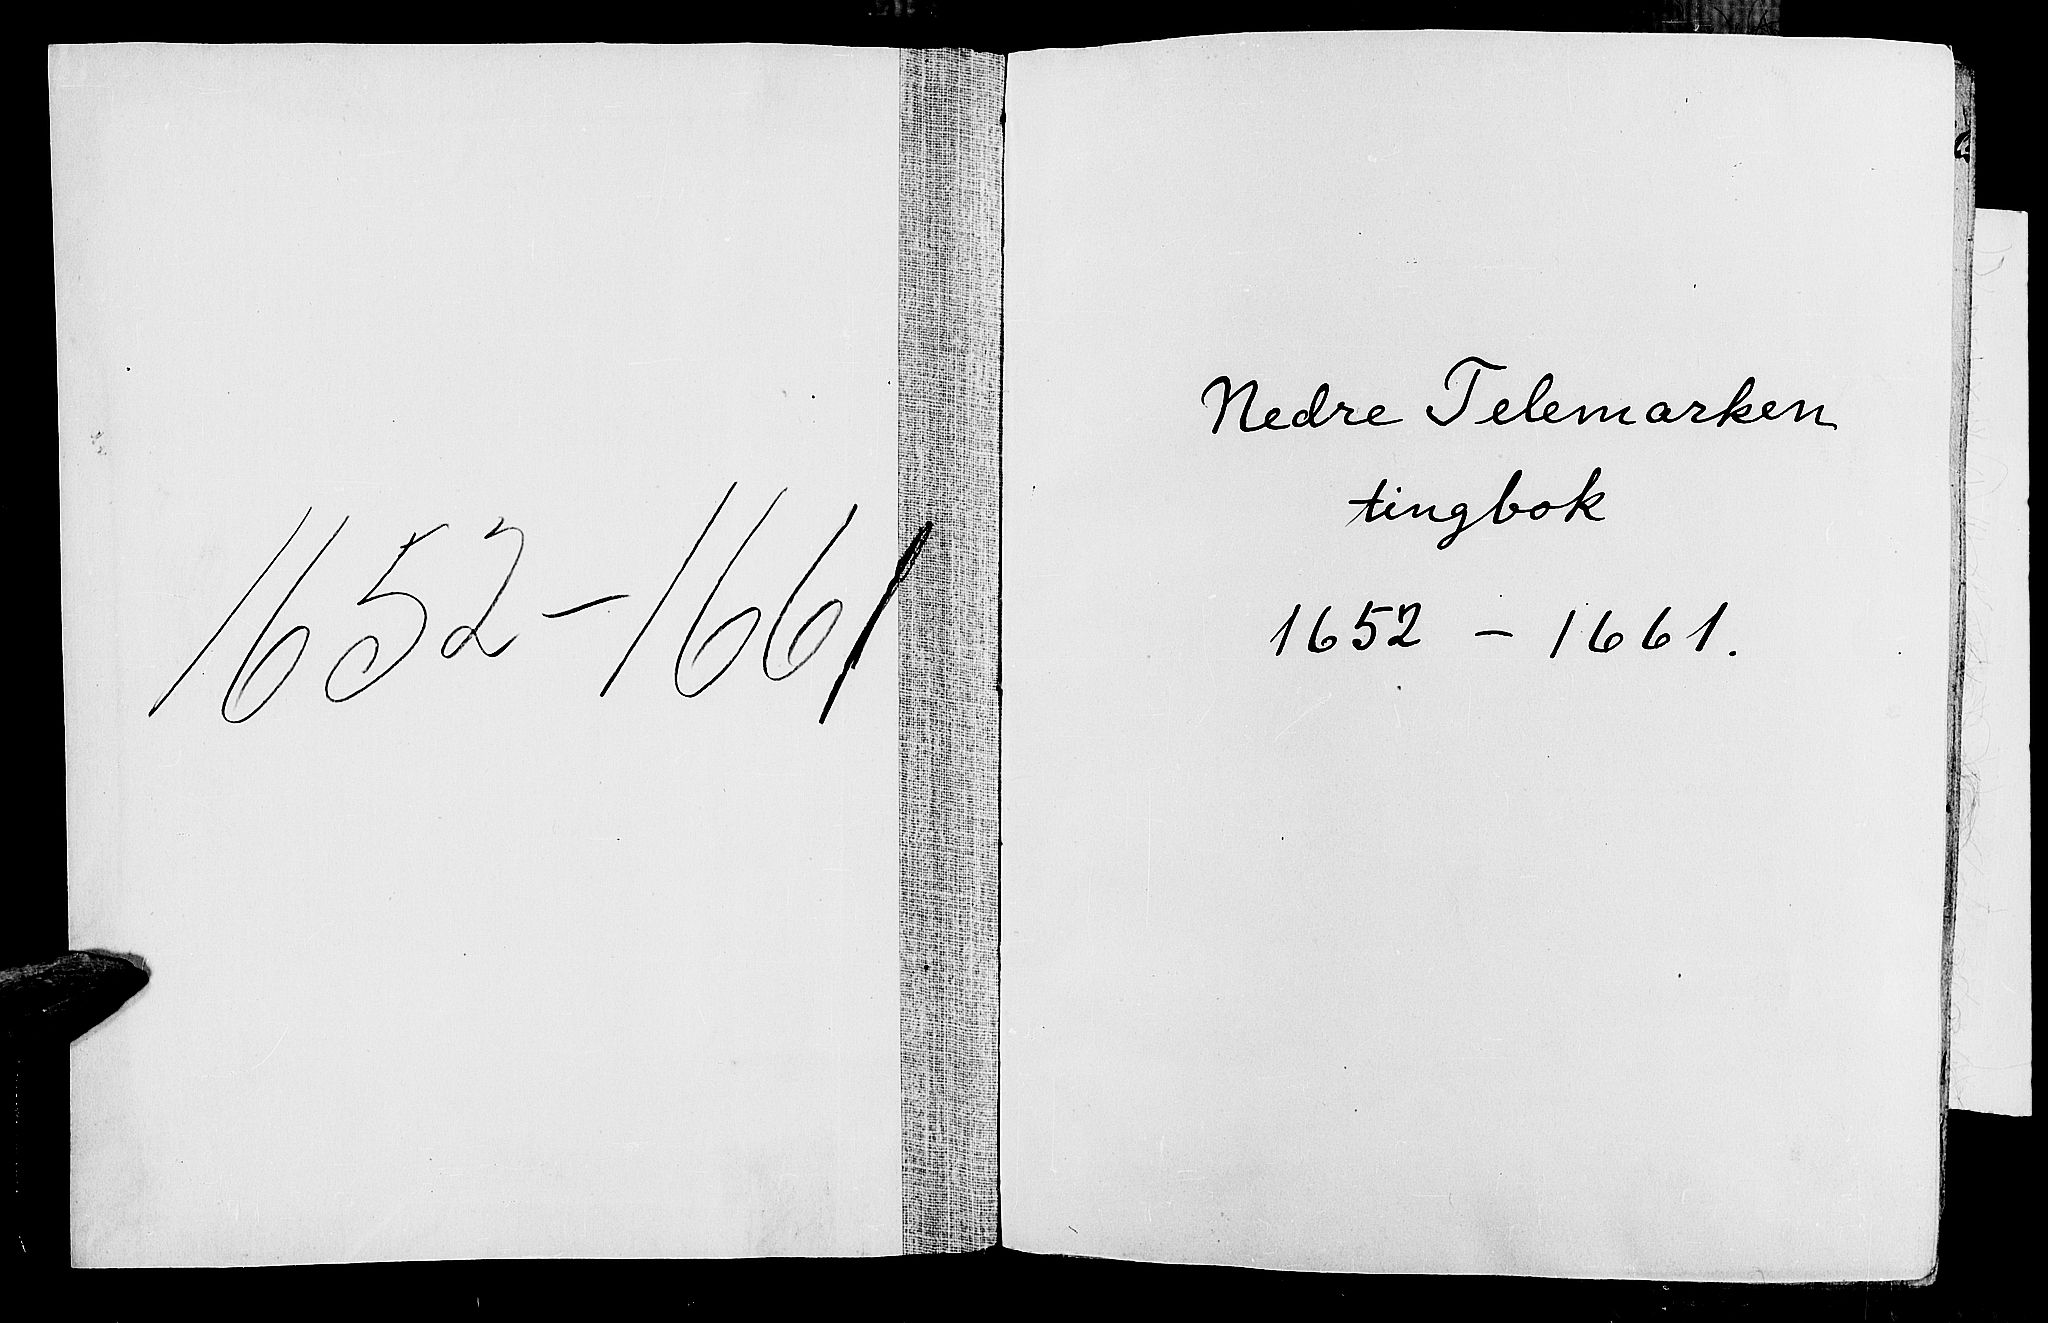 1652-1661
Nedre Telemarken
tingbok
1652 - 1661.